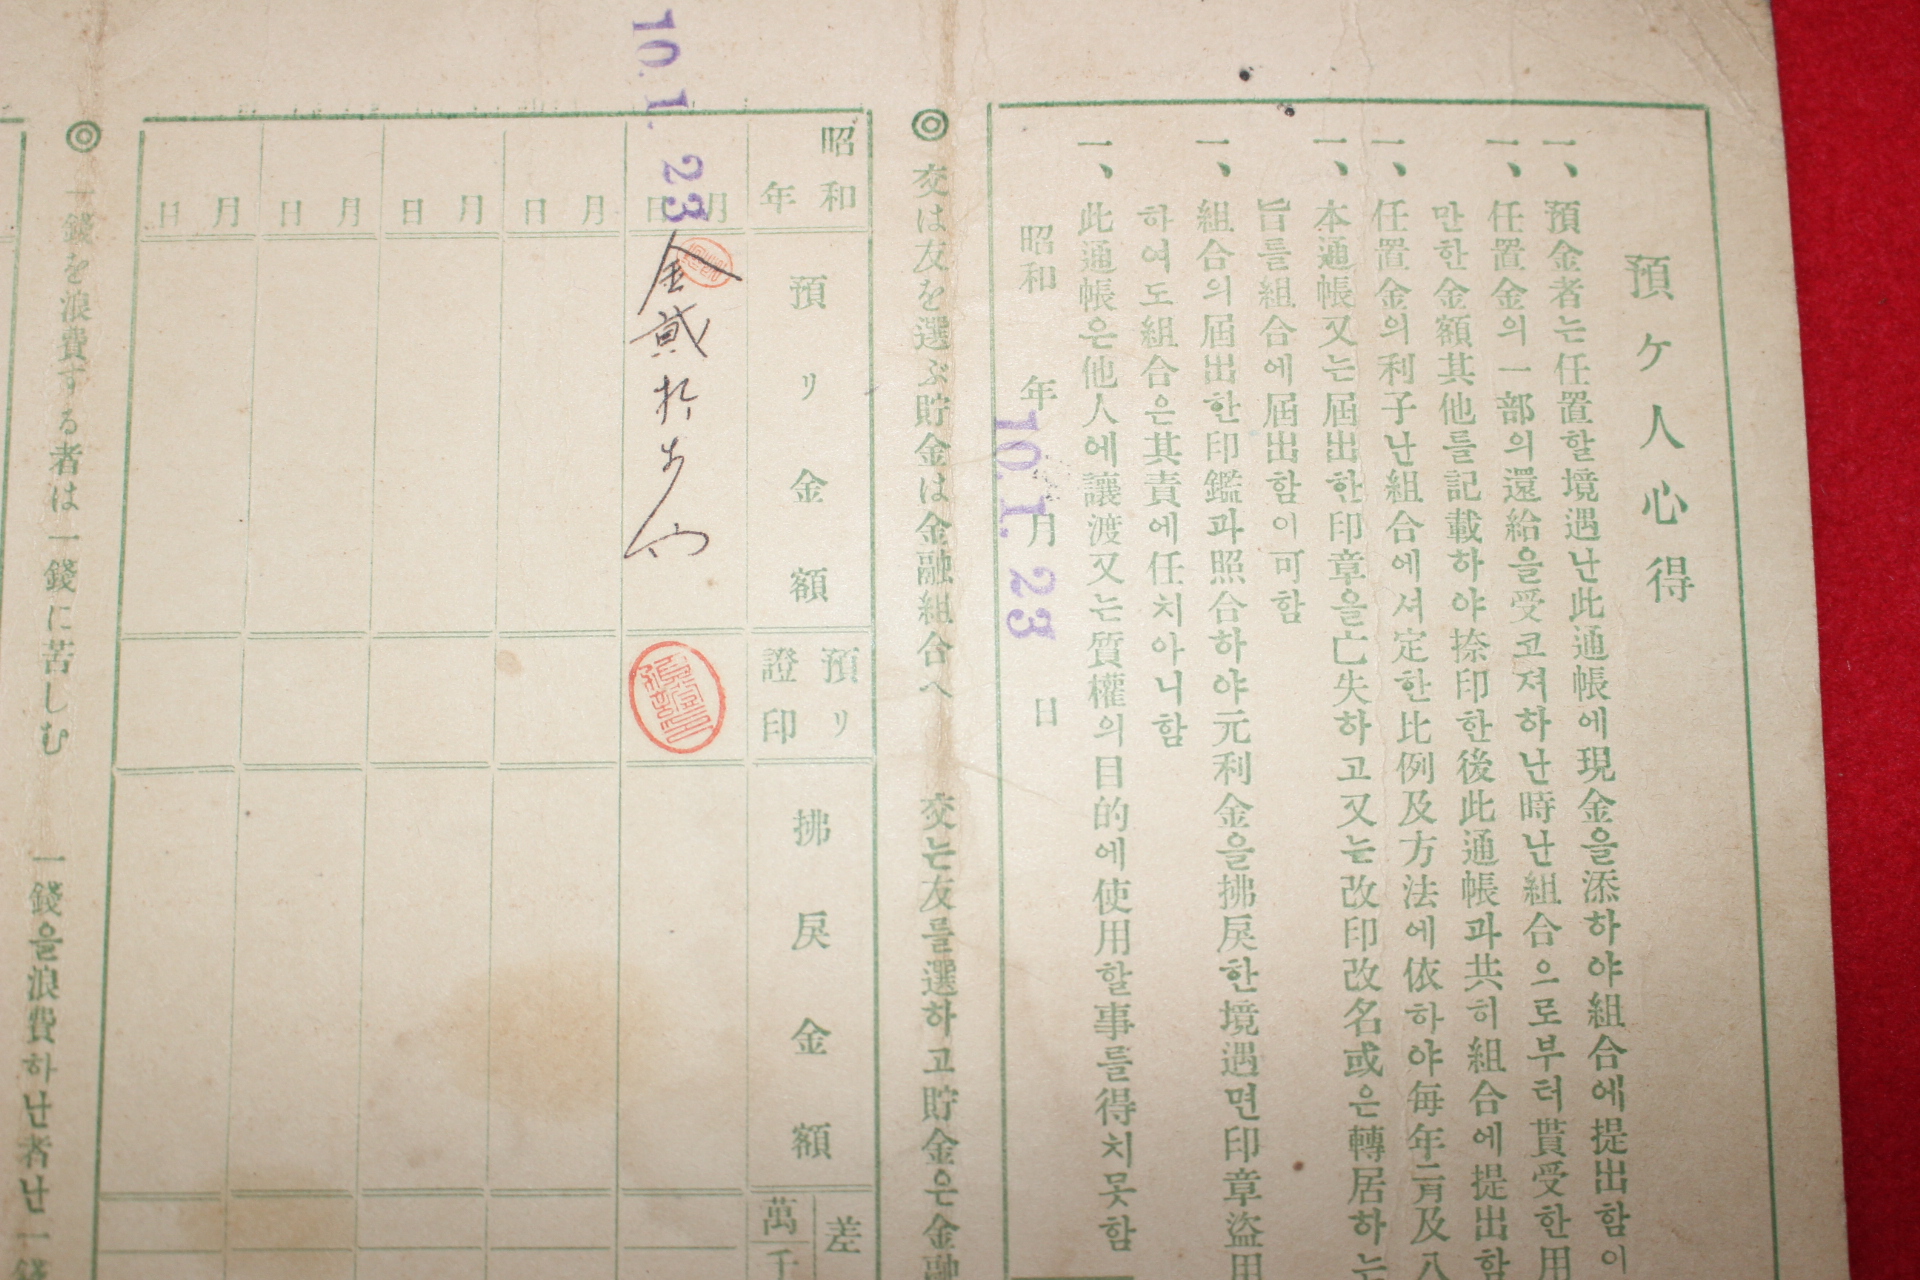 預ヶ人心得
一、預金者는任置할境遇난此通帳에現金을添하야組合에提出함이
一、任置金의一部의還給을受코져하난時난組合으로부터貰受한用
만한金額其他를記載하야捺印한後此通帳과共히組合에提出함
一、任置金의利子난組合에셔定한比例及方法에依하야每年二月及八
一、本通帳又는屆出한印章을亡失하고又는改印改名或은轉居하는
旨를組合에屆出함이可함
一、組合의屆出한印鑑과照合하야元利金을拂戾한境遇면印章盜用
하여도組合은其責에任치아니함
一、此通帳은他人에讓渡又는質權의目的에使用할事를得치못함
昭和 年 月 日
10.1.23
◎ 交は友を選ぶ貯金は金融組合へ 交는友를選하고貯金은金融
昭和 年
預リ金額
預リ證印
拂戾金額
差
萬千
月日
10.1.23
金貳拾
月日
月日
月日
月日
◎ 一錢を浪費する者は一錢に苦しむ 一錢을浪費하난者난一錢